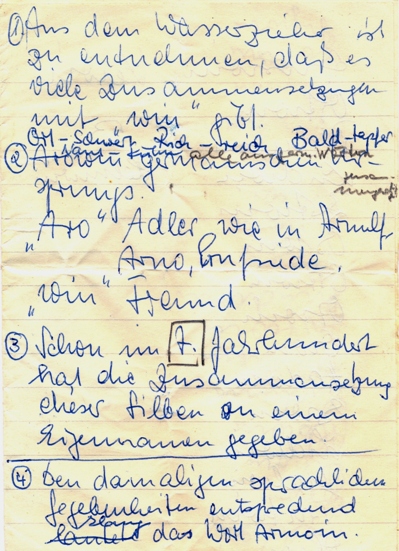 ① Aus dem Wasserzieher ist
zu entnehmen, daß es
viele Zusammensetzungen
mit "win" gibt.
Ort - Schwert - Rich - reich Bald - tapfer
② germanischen Ur-
sprungs.
"Aro" Adler wie in Arnulf
Arno, Ernfriede.
"win" Freund.
③ Schon im 7. Jahrhundert
hat die Zusammensetzung
dieser Silben zu einem
Eigennamen gegeben.
④ Den damaligen sprachlichen
Gegebenheiten entsprechend
das Wort Arnoin.